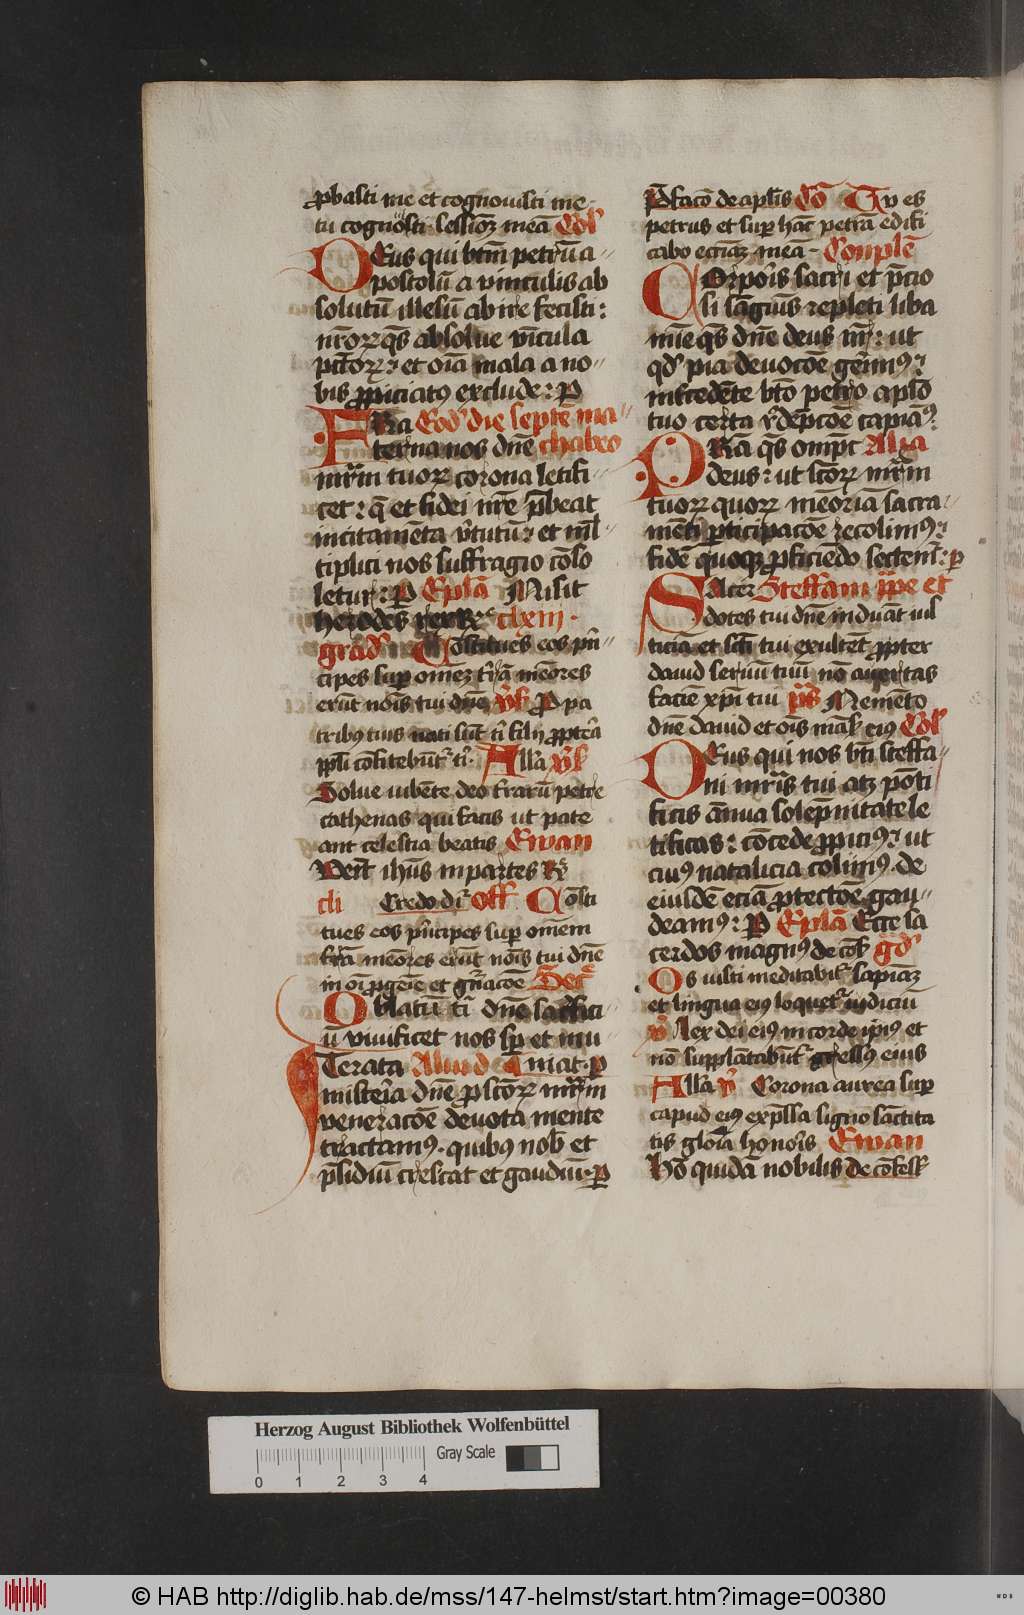 ꝓbasti me et cognouisti me
tu cognouisti sessionē meā Coł
Deus qui btm̄ petrū a-
postolū a vinculis ab
solutū illesū abire fecisti:
nr̄oꝝ q̄s absolue vīcula
pctōꝝ: et oīa mala a no-
bis ꝓpiciatꝰ exclude: P
FRa Eod' die septē ma-
terna nos dn̄e chabeo
mr̄m tuoꝝ corona letifi-
cet: q̄ et fidei nr̄e p̄beat
incitamēta v̓tutū: et ml̄-
tiplici nos suffragio cōso
letur: P Eplā Misit
herodes rex
grad' Cōstitues eos pn̄-
cipes sup omēꝫ t̄rā mēores
erūt nōis tui dn̄e v̓s Pro pa
tribꝰ tuis nati sūt t̄ filij ꝓpterea
ppl̄i cōfitebūt̄ t̄ Alla v̓s
Solue iubēte deo t̄rarū petre
cathenas qui facis ut pate
ant celestia beatis Ewan
Venit ihūs in partes Rͤ
cli Credo dr̄ off Cōsti
tues eos pn̄cipes sup omēm
t̄rā mēores erūt nōis tui dn̄e
in oī ꝓgēie et gn̄acōe Secͬ
Oblatū t̄ dn̄e sac̓fici-
ū viuificet nos sp̄ et mu-
Terata Aliud niat P
misteria dn̄e ꝓ sctōꝝ mr̄m
veneracōe deuota mente
tractamꝰ quibꝰ nob̄ et
p̄sidiū crescat et gaudiū P
P̄facō de apl̄is Cō Tv es
petrus et sup hāc petrā edifi
cabo eccīaꝫ meā - Conplē
COrporis sacri et p̄cio
si sāguis repleti liba
mīe q̄s dn̄e deus nr̄: ut
qd' pia deuocōe gerimꝰ:
int̓cedēte bt̄o petro aplō
tuo certa r̓dēpcōe capiāꝰ:
PRā q̄s omp̄t Alia
deus: ut sctōꝝ mr̄m
tuoꝝ quoꝝ mēoriā sacra-
mēti ꝑticipacōe recolimꝰ:
fidē quoqꝫ ꝓficiēdo sectem̄: p
SAcer Steffani ppe et
dotes tui dn̄e induāt ius
ticiā et scti tui exultēt ꝓpter
dauid seruū tuū nō auertas
faciē xp̄i tui p̄s Memēto
dn̄e dauid et oīs mās eiꝰ Coł
DEus qui nos bt̄i steffa-
ni mr̄is tui atqꝫ pōti
ficis ānua solēpnitate le
tificas: cōcede ꝓpiciꝰ: ut
cuiꝰ natalicia colimꝰ de
eiusdē eciā ꝓtectōe gau-
deamꝰ: P Eplā Ecce sa
cerdos magnꝰ de cōf g̓d'
Os iusti meditabit̄ sapiāꝫ
et lingua eiꝰ loquet̄ iudiciū
v̓ lex dei eiꝰ in corde ip̄iꝰ et
nō supplātabūt̄ gressꝰ eius
Alla v̓ Corona aurea sup
capud eiꝰ exp̄ssa signo sāctita
tis gloīa honoris Ewan
Hō quidā nobilis de cōfess
Herzog August Bibliothek Wolfenbüttel
Gray Scale
0 1 2 3 4
© HAB http://diglib.hab.de/mss/147-helmst/start.htm?image=00380